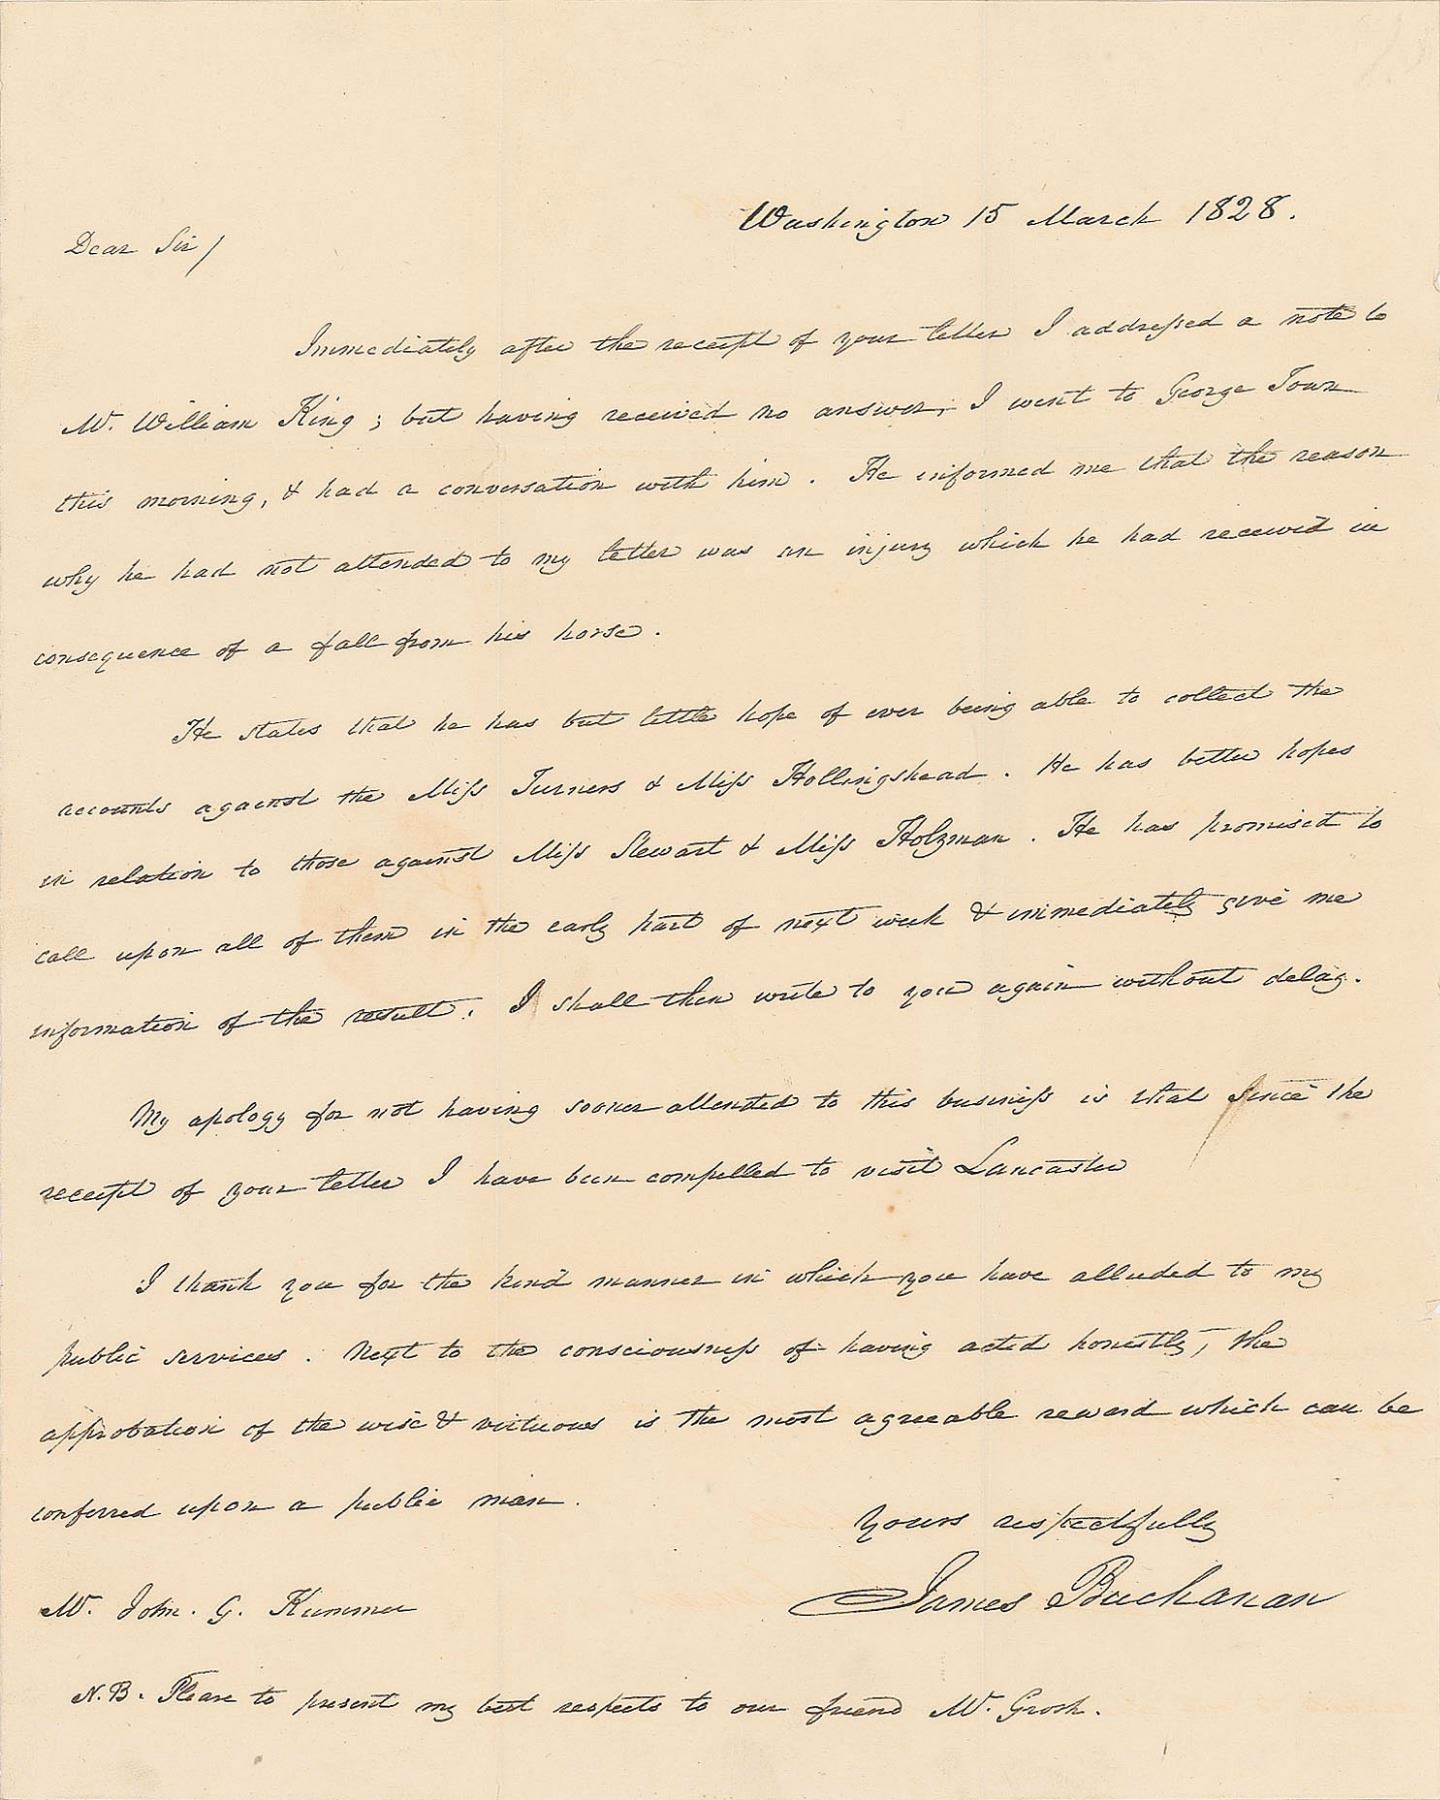 Washington 15 March 1828.
Dear Sir/
Immediately after the receipt of your letter I addressed a note to
Mr. William King; but having received no answer, I went to George Town
this morning, & had a conversation with him. He informed me that the reason
why he had not attended to my letter was an injury which he had received in
consequence of a fall from his horse.
He states that he has but little hope of ever being able to collect the
accounts against the Miss Turners & Miss Hollingshead. He has better hopes
in relation to those against Miss Stewart & Miss Holzman. He has promised to
call upon all of them in the early part of next week & immediately give me
information of the result. I shall then write to you again without delay.
My apology for not having sooner attended to this business is that since the
receipt of your letter I have been compelled to visit Lancaster
I thank you for the kind manner in which you have alluded to my
public services. Next to the consciousness of having acted honestly, the
approbation of the wise & virtuous is the most agreeable reward which can be
conferred upon a public man.
Yours respectfully
James Buchanan
Mr. John. G. Kummer
N.B. Please to present my best respects to our friend Mr. Grosh.